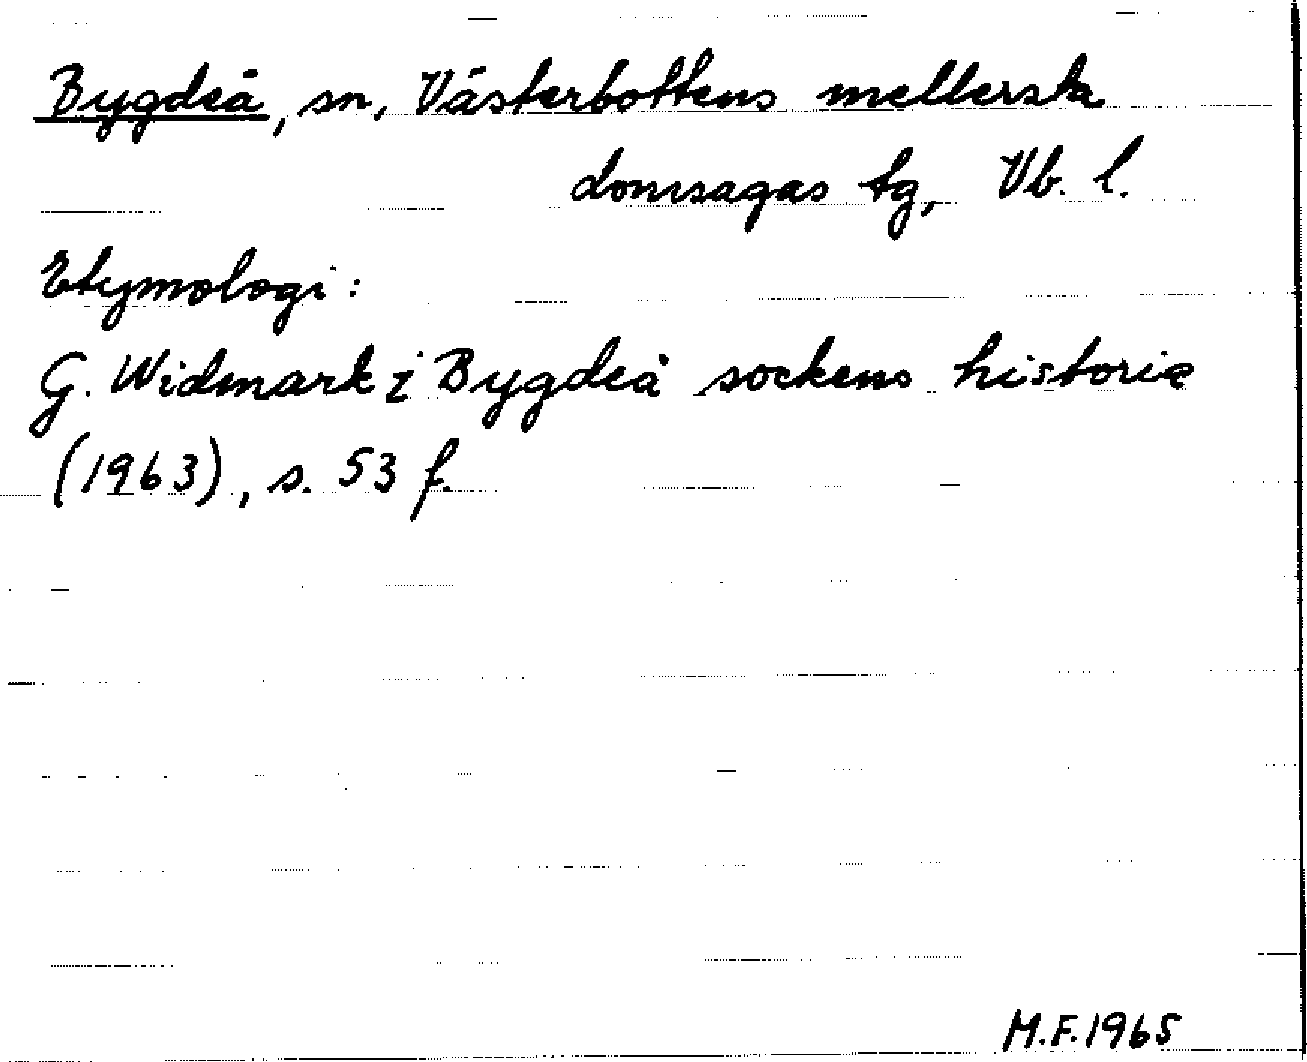 Bygdeå, sn, Västerbottens mellersta
domsagas tg, Vb. l.
Etymologi:
G. Widmark i Bygdeå sockens historia
(1963), s. 53 f.
M.F. 1965